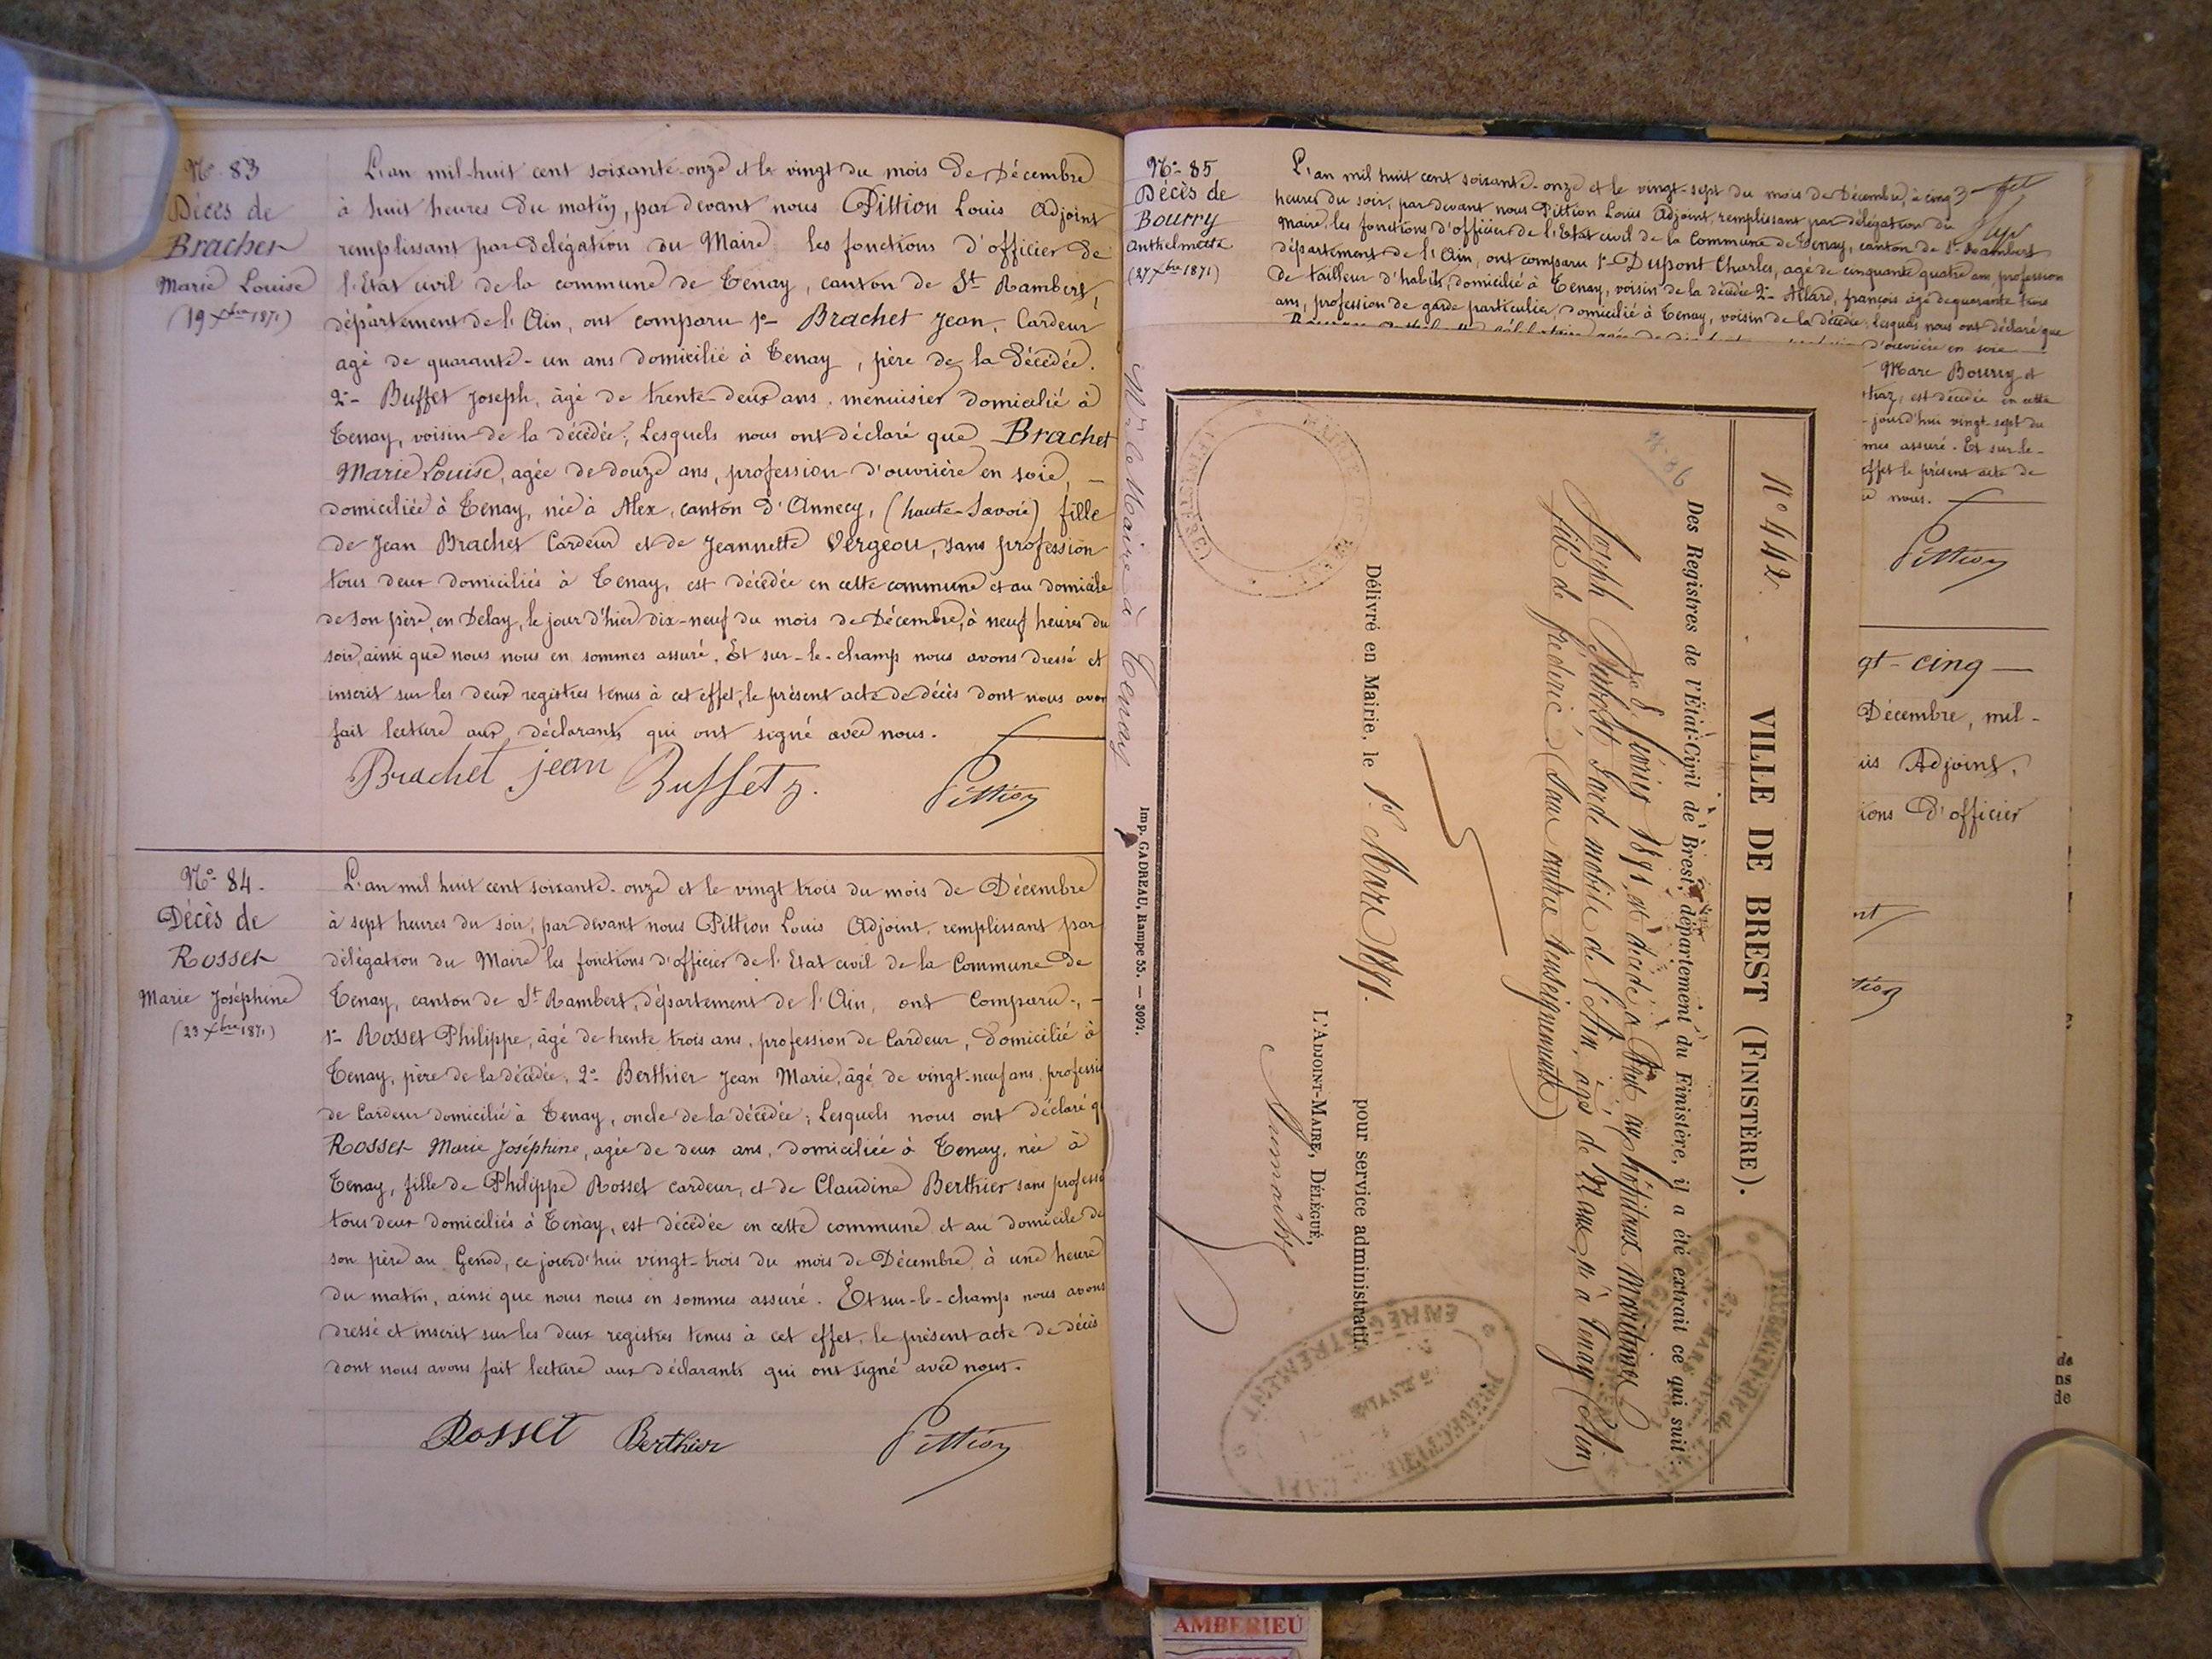 Nº 83
Décès de
Brachet
Marie Louise
(19 Xbre 1871)
L'an mil-huit cent soixante-onze et le vingt du mois de Décembre
à huit heures du matin, par devant nous Pittion Louis Adjoint
remplissant par délégation du Maire les fonctions d'officier de
l'Etat civil de la commune de Tenay, canton de St Rambert,
département de l'Ain, ont comparu 1º- Brachet Jean, Cardeur
agé de quarante-un ans domicilié à Tenay, père de la décédée.
2º- Buffet Joseph, âgé de trente-deux ans, menuisier domicilié à
Tenay, voisin de la décédée; Lesquels nous ont déclaré que Brachet
Marie Louise, agée de douze ans, profession d'ouvrière en soie, —
domiciliée à Tenay, née à Alex, canton d'Annecy, (haute-Savoie) fille
de Jean Brachet Cardeur et de Jeannette Vergeou, sans profession
tous deux domiciliés à Tenay, est décédée en cette commune et au domicile
de son père, en Delay, le jour d'hier dix-neuf du mois de Décembre, à neuf heures du
soir, ainsi que nous nous en sommes assuré. Et sur-le-champ nous avons dressé et
inscrit sur les deux registres tenus à cet effet, le présent acte de décès dont nous avon
fait lecture aux déclarants qui ont signé avec nous. —
Brachet jean Buffet J. Pittion
Nº 84.
Décès de
Rosset
Marie Joséphine
(23 Xbre 1871)
L'an mil huit cent soixante-onze et le vingt trois du mois de Décembre
à sept heures du soir, par devant nous Pittion Louis Adjoint, remplissant par
délégation du Maire les fonctions d'officier de l'Etat civil de la Commune de
Tenay, canton de St Rambert, département de l'Ain, ont Comparu, —
1º- Rosset Philippe, âgé de trente trois ans, profession de Cardeur, Domicilié à
Tenay, père de la décédée, 2º- Berthier Jean Marie, âgé de vingt-neuf ans, professi
de Cardeur domicilié à Tenay, oncle de la décédée; Lesquels nous ont déclaré q
Rosset Marie Joséphine, agée de deux ans, domiciliée à Tenay, née à
Tenay, fille de Philippe Rosset cardeur, et de Claudine Berthier sans professi
tous deux domiciliés à Tenay, est décédée en cette commune et au domicile de
son père au Genod, ce jourd'hui vingt-trois du mois de Décembre à une heure
du matin, ainsi que nous nous en sommes assuré. Et sur-le-champ nous avons
dressé et inscrit sur les deux registres tenus à cet effet, le présent acte de décès
dont nous avons fait lecture aux déclarants qui ont signé avec nous.
Rosset Berthier Pittion
Nº 85
Décès de
Bourry
Anthelmette
(27 Xbre 1871)
L'an mil huit cent soixante-onze et le vingt-sept du mois de Décembre, à cinq
heures du soir, par devant nous Pittion Louis Adjoint, remplissant par délégation du
Maire, les fonctions d'officier de l'Etat civil de la Commune de Tenay, canton de St Rambert
département de l'Ain, ont comparu 1º- Dupont Charles, agé de cinquante quatre ans, profession
de tailleur d'habits, domicilié à Tenay, voisin de la décédée 2º- Allard, françois âgé de quarante trois
ans, profession de garde particulier, domicilié à Tenay, voisin de la décédée, lesquels nous ont déclaré que
d'ouvrière en soie —
Marc Bourry et
est décédée en cette
jourd'hui vingt-sept du
mes assuré. Et sur-le-
effet le présent acte de
nous. —
Pittion
gt-cinq —
Décembre, mil-
is Adjoint,
ions d'officier
nt
tion
Mr le Maire à Tenay
Nº 86
Nº 442.
VILLE DE BREST (FINISTÈRE).
Des Registres de l'État-Civil de Brest, département du Finistère, il a été extrait ce qui suit:
Février 1871, est décédé à Brest aux hôpitaux Maritimes
Joseph Garde mobile de l'Ain, âgé de 21 ans, né à Tenay (Ain)
fils de frédéric (Sans autres renseignements)
Délivré en Mairie, le 1er Mars 1871. pour service administratif.
L'ADJOINT-MAIRE, DÉLÉGUÉ,
MAIRIE DE BREST
(FINISTÈRE)
PRÉFECTURE de l'AIN
PRÉFECTURE de l'AIN
ENREGISTREMENT
Imp. GADREAU, Rampe 55. — 3092.
de
ns
de
AMBERIEU